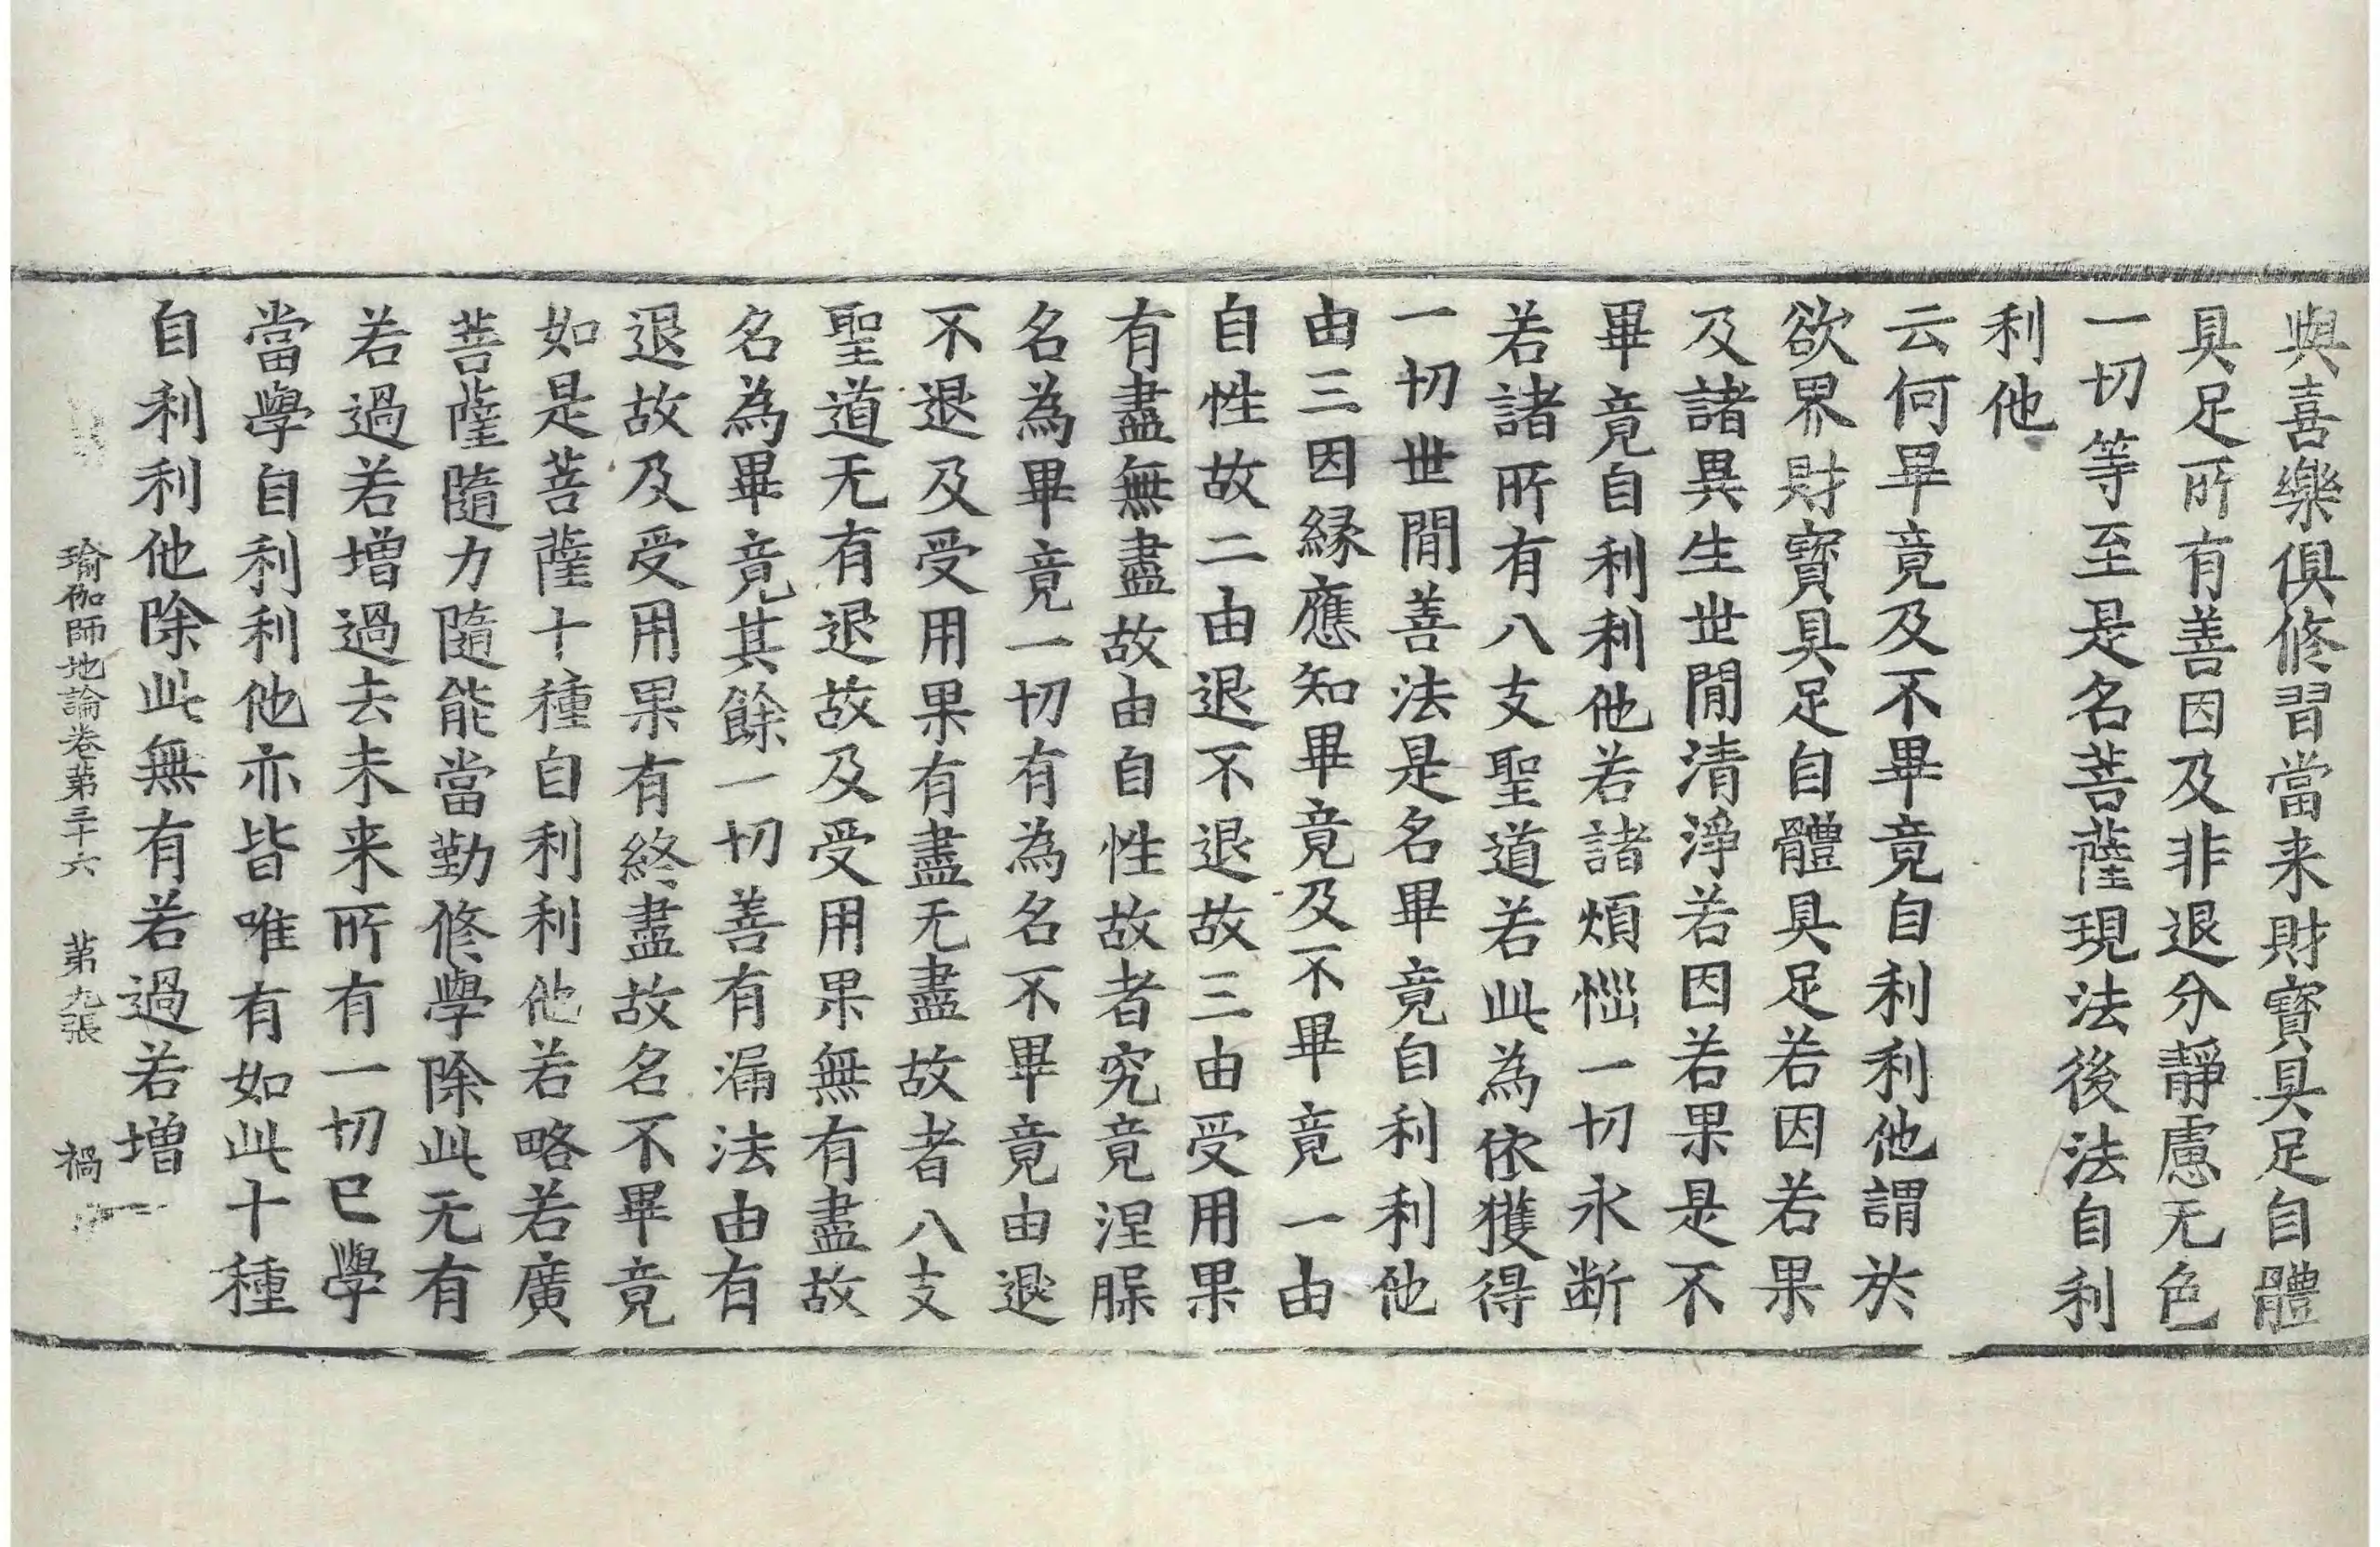 與喜樂俱修習當来財寶具足自體
具足所有善因及非退分靜慮无色
一切等至是名菩薩現法後法自利
利他
云何畢竟及不畢竟自利利他謂於
欲界財寶具足自體具足若因若果
及諸異生世間清淨若因若果是不
畢竟自利利他若諸煩惱一切永断
若諸所有八支聖道若此為依獲得
一切世間善法是名畢竟自利利他
由三因縁應知畢竟及不畢竟一由
自性故二由退不退故三由受用果
有盡無盡故由自性故者究竟涅槃
名為畢竟一切有為名不畢竟由退
不退及受用果有盡无盡故者八支
聖道无有退故及受用果無有盡故
名為畢竟其餘一切善有漏法由有
退故及受用果有終盡故名不畢竟
如是菩薩十種自利利他若略若廣
菩薩隨力隨能當勤修學除此无有
若過若增過去未来所有一切已學
當學自利利他亦皆唯有如此十種
自利利他除此無有若過若增
瑜伽師地論卷苐三十六 苐九張 禍